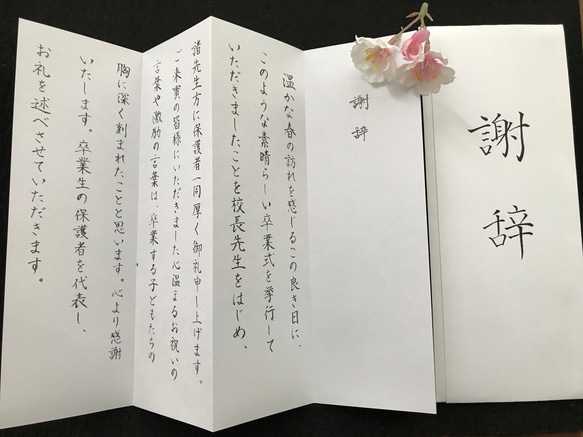 謝辞
謝辞
温かな春の訪れを感じるこの良き日に、
このような素晴らしい卒業式を挙行して
いただきましたことを校長先生をはじめ、
諸先生方に保護者一同厚く御礼申し上げます。
ご来賓の皆様にいただきました心温まるお祝いの
言葉や激励の言葉は、卒業する子どもたちの
胸に深く刻まれたことと思います。心より感謝
いたします。卒業生の保護者を代表し、
お礼を述べさせていただきます。